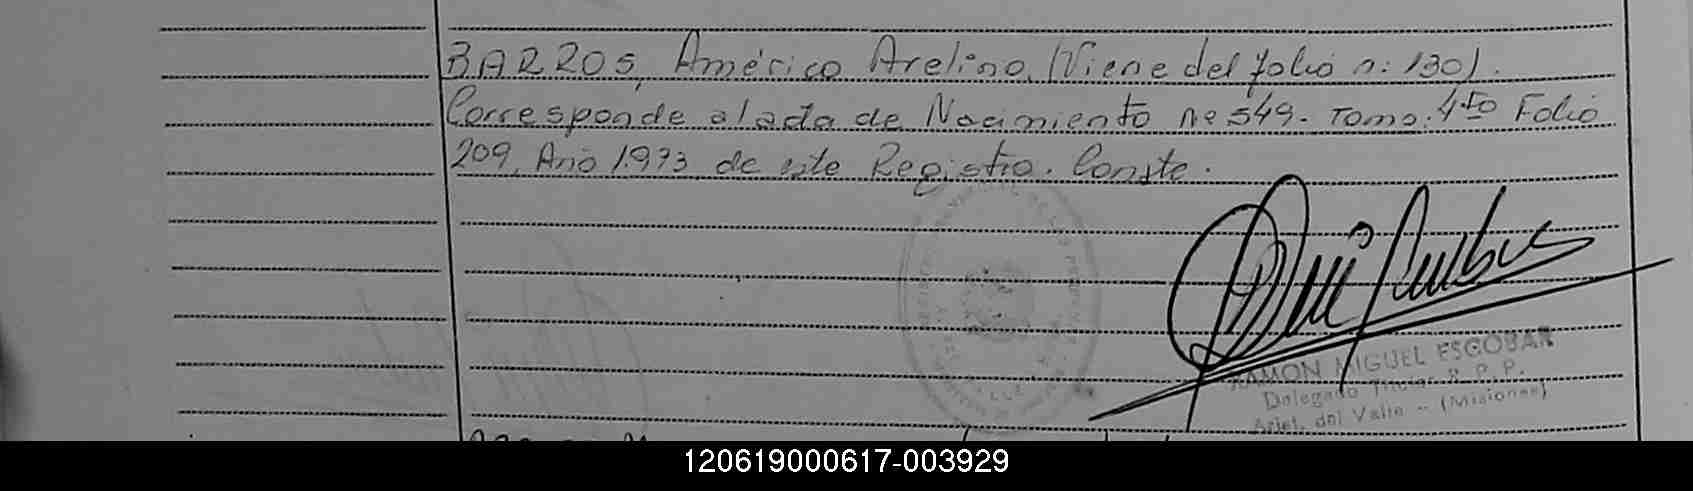 BARROS, Américo Avelino. (Viene del folio n: 130).
Corresponde al acta de Nacimiento Nº 549. Tomo: 4to Folio
209. Año 1.973 de este Registro. Conste.
RAMON MIGUEL ESCOBAR
Delegado Titular R. P. P.
Arist. del Valle - (Misiones)
120619000617-003929